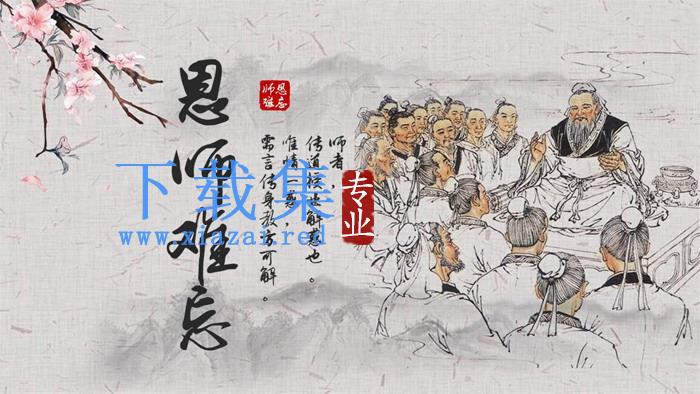 恩师难忘
师恩
难忘
师者，
传道授业解惑也。
唯情一惑，
需言传身教方可解。
专业
下载集
www.xiazai.red